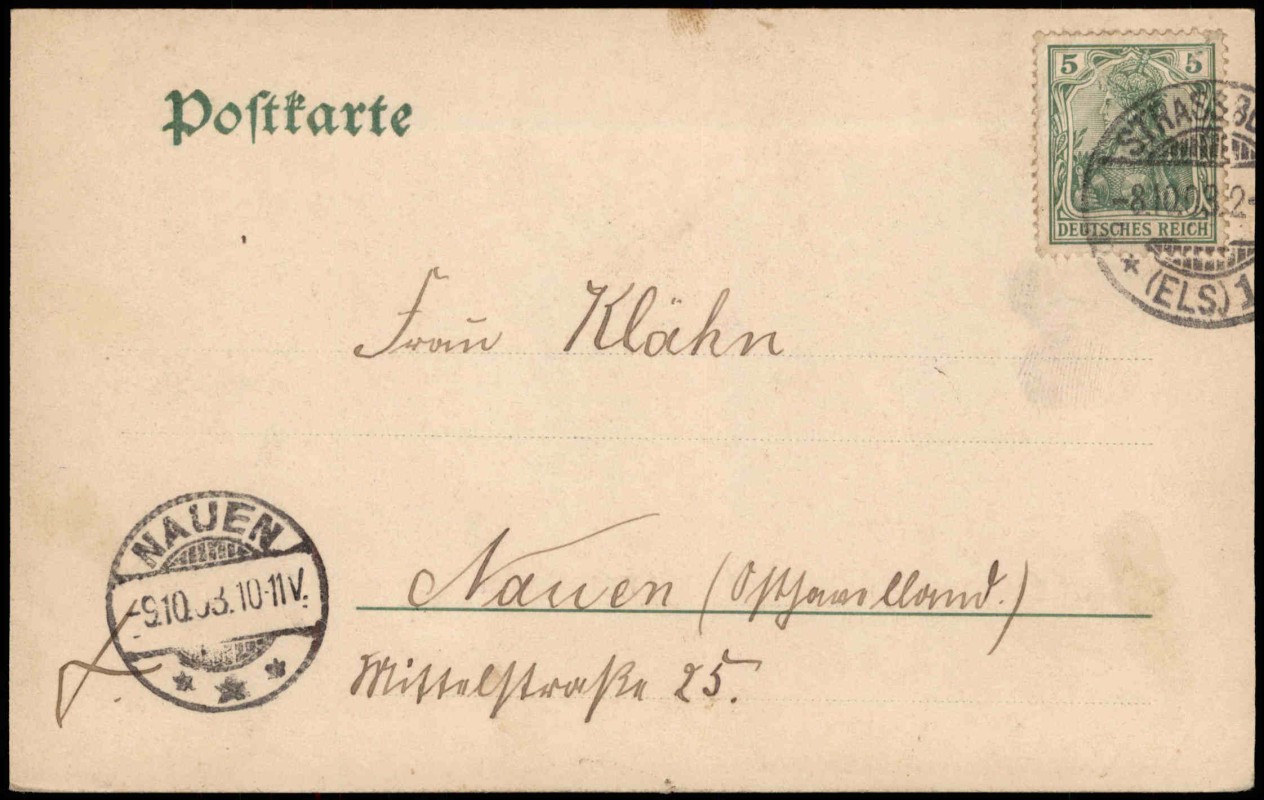 Postkarte
5 5
DEUTSCHES REICH
STRASSB
-8.10.03. 2-
* (ELS) 1
Frau Klähn
Nauen (Osthavelland.)
Mittelstraße 25.
NAUEN
-9.10.03.10-11V.
* * *